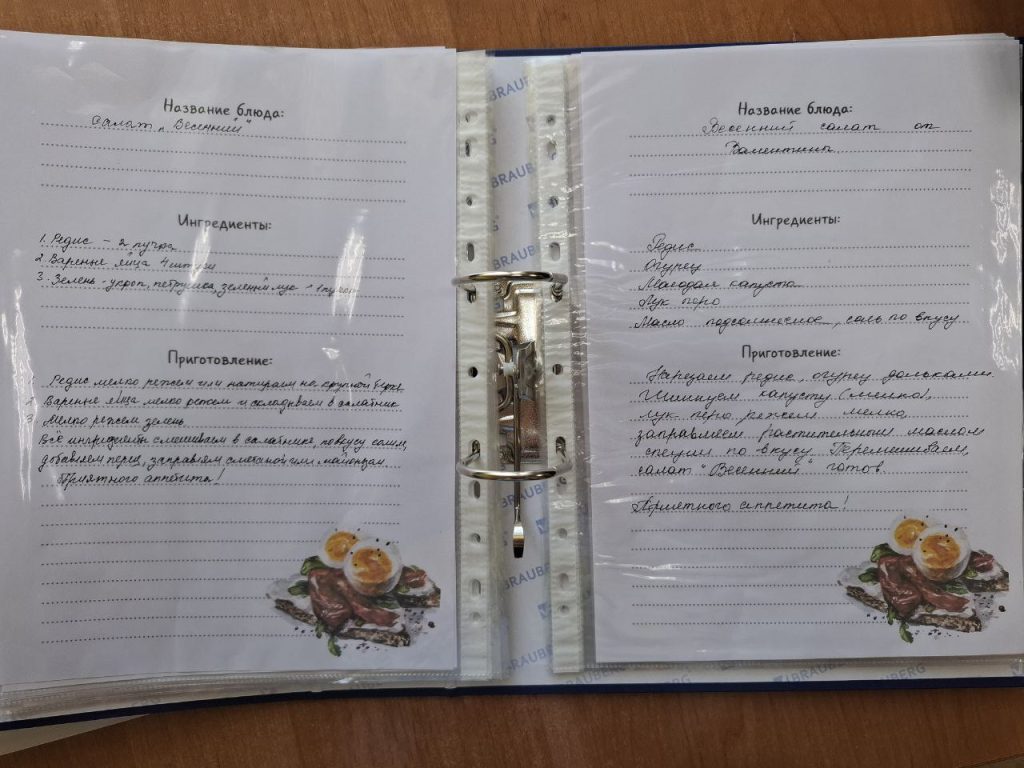 Название блюда:
Салат „Весенний"
Ингредиенты:
1. Редис – 2 пучка
2. Вареные яйца 4 штуки
3. Зелень - укроп, петрушка, зелёный лук - 1 пучок
Приготовление:
1. Редис мелко режем или натираем на крупной терке
2. Вареные яйца мелко режем и складываем в салатник
3 Мелко режем зелень
Все ингредиенты смешиваем в салатнике, по вкусу солим,
добавляем перец, заправляем сметаной или майонезом
Приятного аппетита!
BRAUBERG
BRAUBERG
BRAUBERG
BRAUBERG
BRAUBERG
BRAUBERG
BRAUBERG
Название блюда:
Весенний салат от
Валентины
Ингредиенты:
Редис
Огурец
Молодая капуста
Лук перо
Масло подсолнечное, соль по вкусу
Приготовление:
Нарезаем редис, огурец дольками
Шинкуем капусту (мелко),
лук перо режем мелко
заправляем растительным маслом
специи по вкусу Перемешиваем,
салат "Весенний" готов.
Приятного аппетита!
BRAUBERG